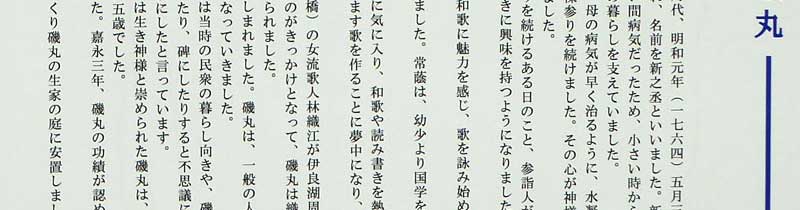 丸
代、明和元年（一七六四）五月三
、名前を新之丞といいました。新
間病気だったため、小さい時から
の暮らしを支えていました。
母の病気が早く治るように、水
様参りを続けました。その心が神様
ました。
りを続けるある日のこと、参詣人が
きに興味を持つようになりました
和歌に魅力を感じ、歌を詠み始め
ました。常蔭は、幼少より国学を
に気に入り、和歌や読み書きを熱
ます歌を作ることに夢中になり、
橋）の女流歌人林織江が伊良湖周
のがきっかけとなって、磯丸は織
られました。
しまれました。磯丸は、一般の人
なっていきました。
は当時の民衆の暮らし向きや、磯
たり、碑にしたりすると不思議に
にしたと言っています。
は生き神様と崇められた磯丸は、
五歳でした。
た。嘉永三年、磯丸の功績が認め
くり磯丸の生家の庭に安置しまし